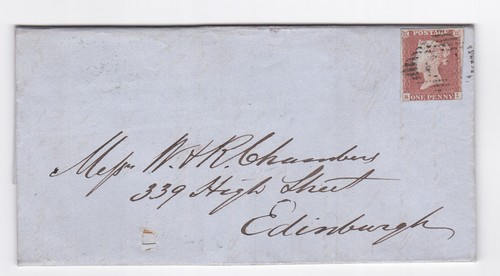 POSTAGE
ONE PENNY
Messrs W & R Chambers
339 High Street
Edinburgh